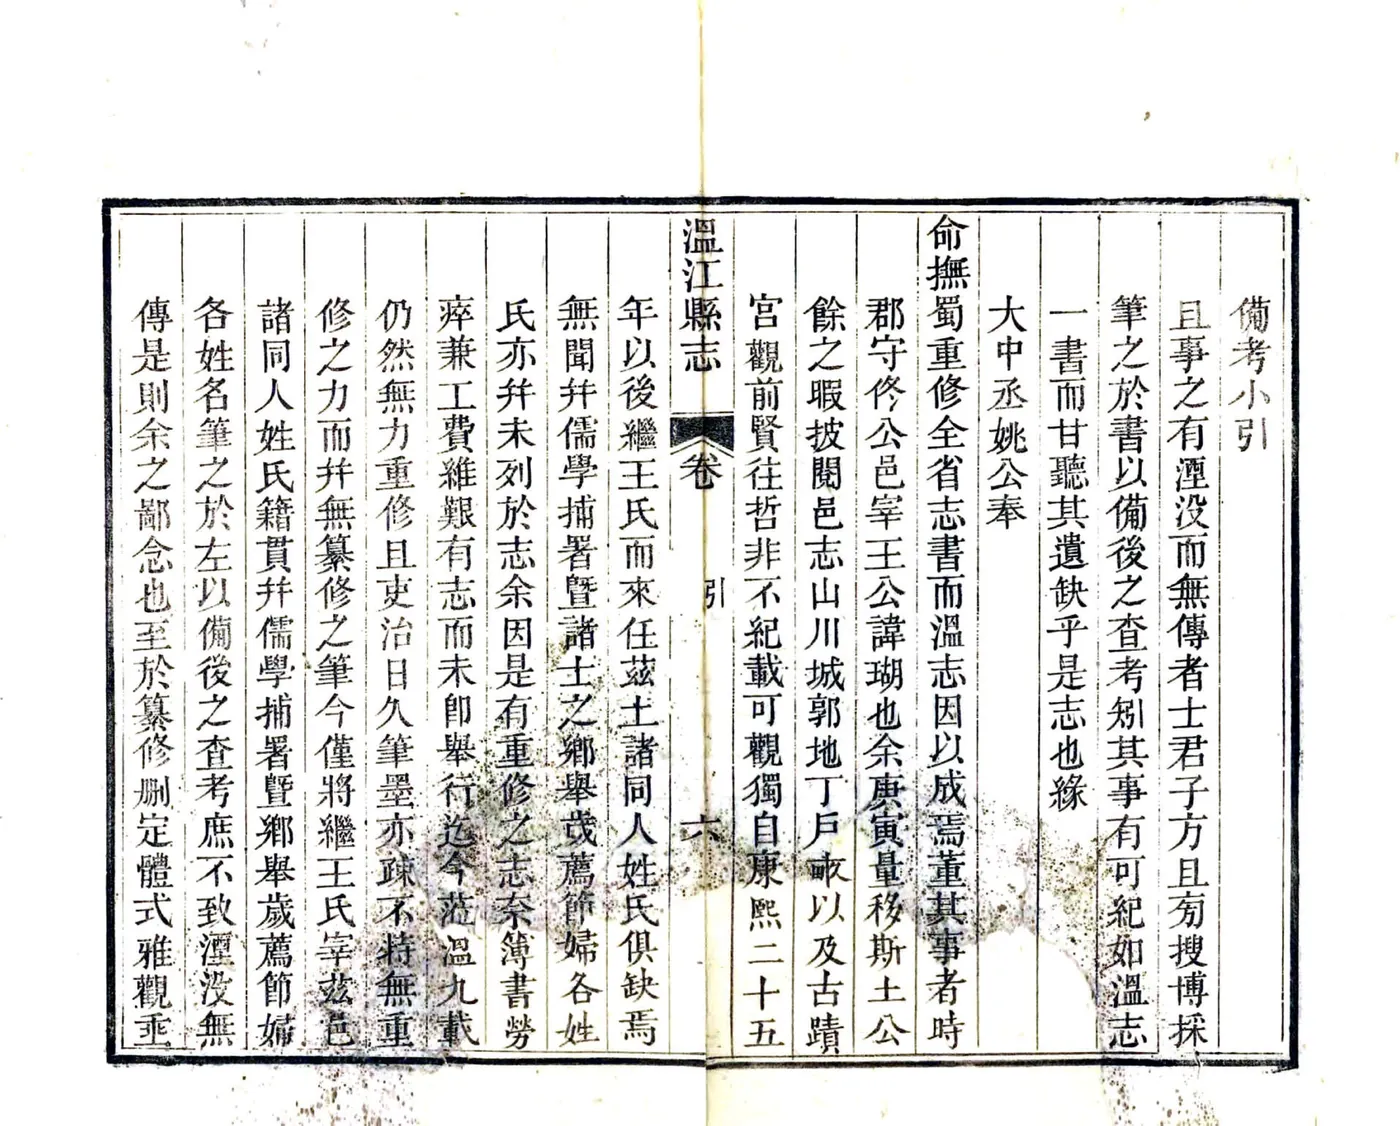 備考小引
且事之有湮没而無傳者士君子方且旁搜博採
筆之於書以備後之查考矧其事有可紀如溫志
一書而甘聽其遺缺乎是志也緣
大中丞姚公奉
命撫蜀重修全省志書而溫志因以成焉董其事者時
郡守佟公邑宰王公諱瑚也余庚寅量移斯土公
餘之暇披閱邑志山川城郭地丁戶畝以及古蹟
宮觀前賢往哲非不紀載可觀獨自康熙二十五
溫江縣志 卷 引 六
年以後繼王氏而來任茲土諸同人姓氏俱缺焉
無聞幷儒學捕署暨諸士之鄉舉歲薦節婦各姓
氏亦幷未列於志余因是有重修之志奈簿書勞
瘁兼工費維艱有志而未卽舉行迄今蒞溫九載
仍然無力重修且吏治日久筆墨亦疎不特無重
修之力而幷無纂修之筆今僅將繼王氏宰茲邑
諸同人姓氏籍貫幷儒學捕署暨鄉舉歲薦節婦
各姓名筆之於左以備後之查考庶不致湮没無
傳是則余之鄙念也至於纂修删定體式雅觀垂